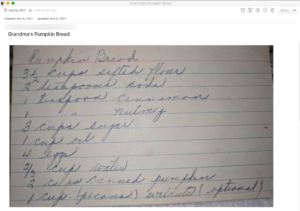 Grandma's Pumpkin Bread
Created: Nov 6, 2011 Updated: Nov 6, 2011
Grandma's Pumpkin Bread
Pumpkin Bread
3½ cups sifted flour
2 teaspoons soda
1 teaspoon cinnamon
1 " nutmeg
3 cups sugar
1 cup oil
4 eggs
2/3 cup water
2 cups canned pumpkin
1 cup (pecans) walnuts (optional)